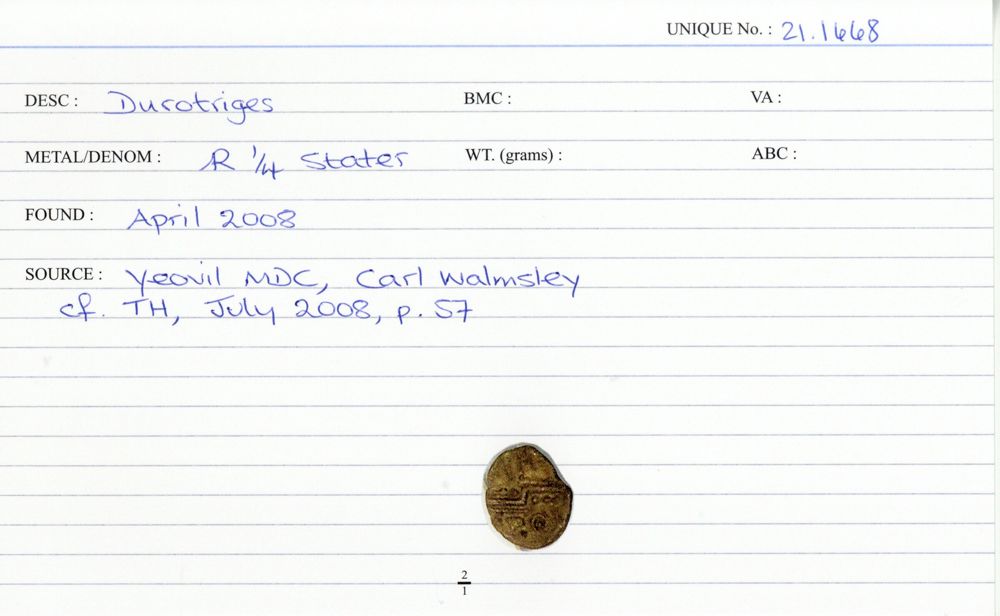 UNIQUE No. : 21.1668
DESC : Durotriges BMC : VA :
METAL/DENOM : R 1/4 Stater WT. (grams) : ABC :
FOUND : April 2008
SOURCE : Yeovil MDC, Carl Walmsley
cf. TH, July 2008, p. 57
2
1